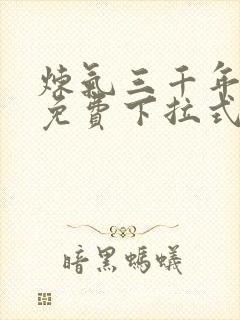 炼氣三千年
免費下拉式
暗黑螞蟻